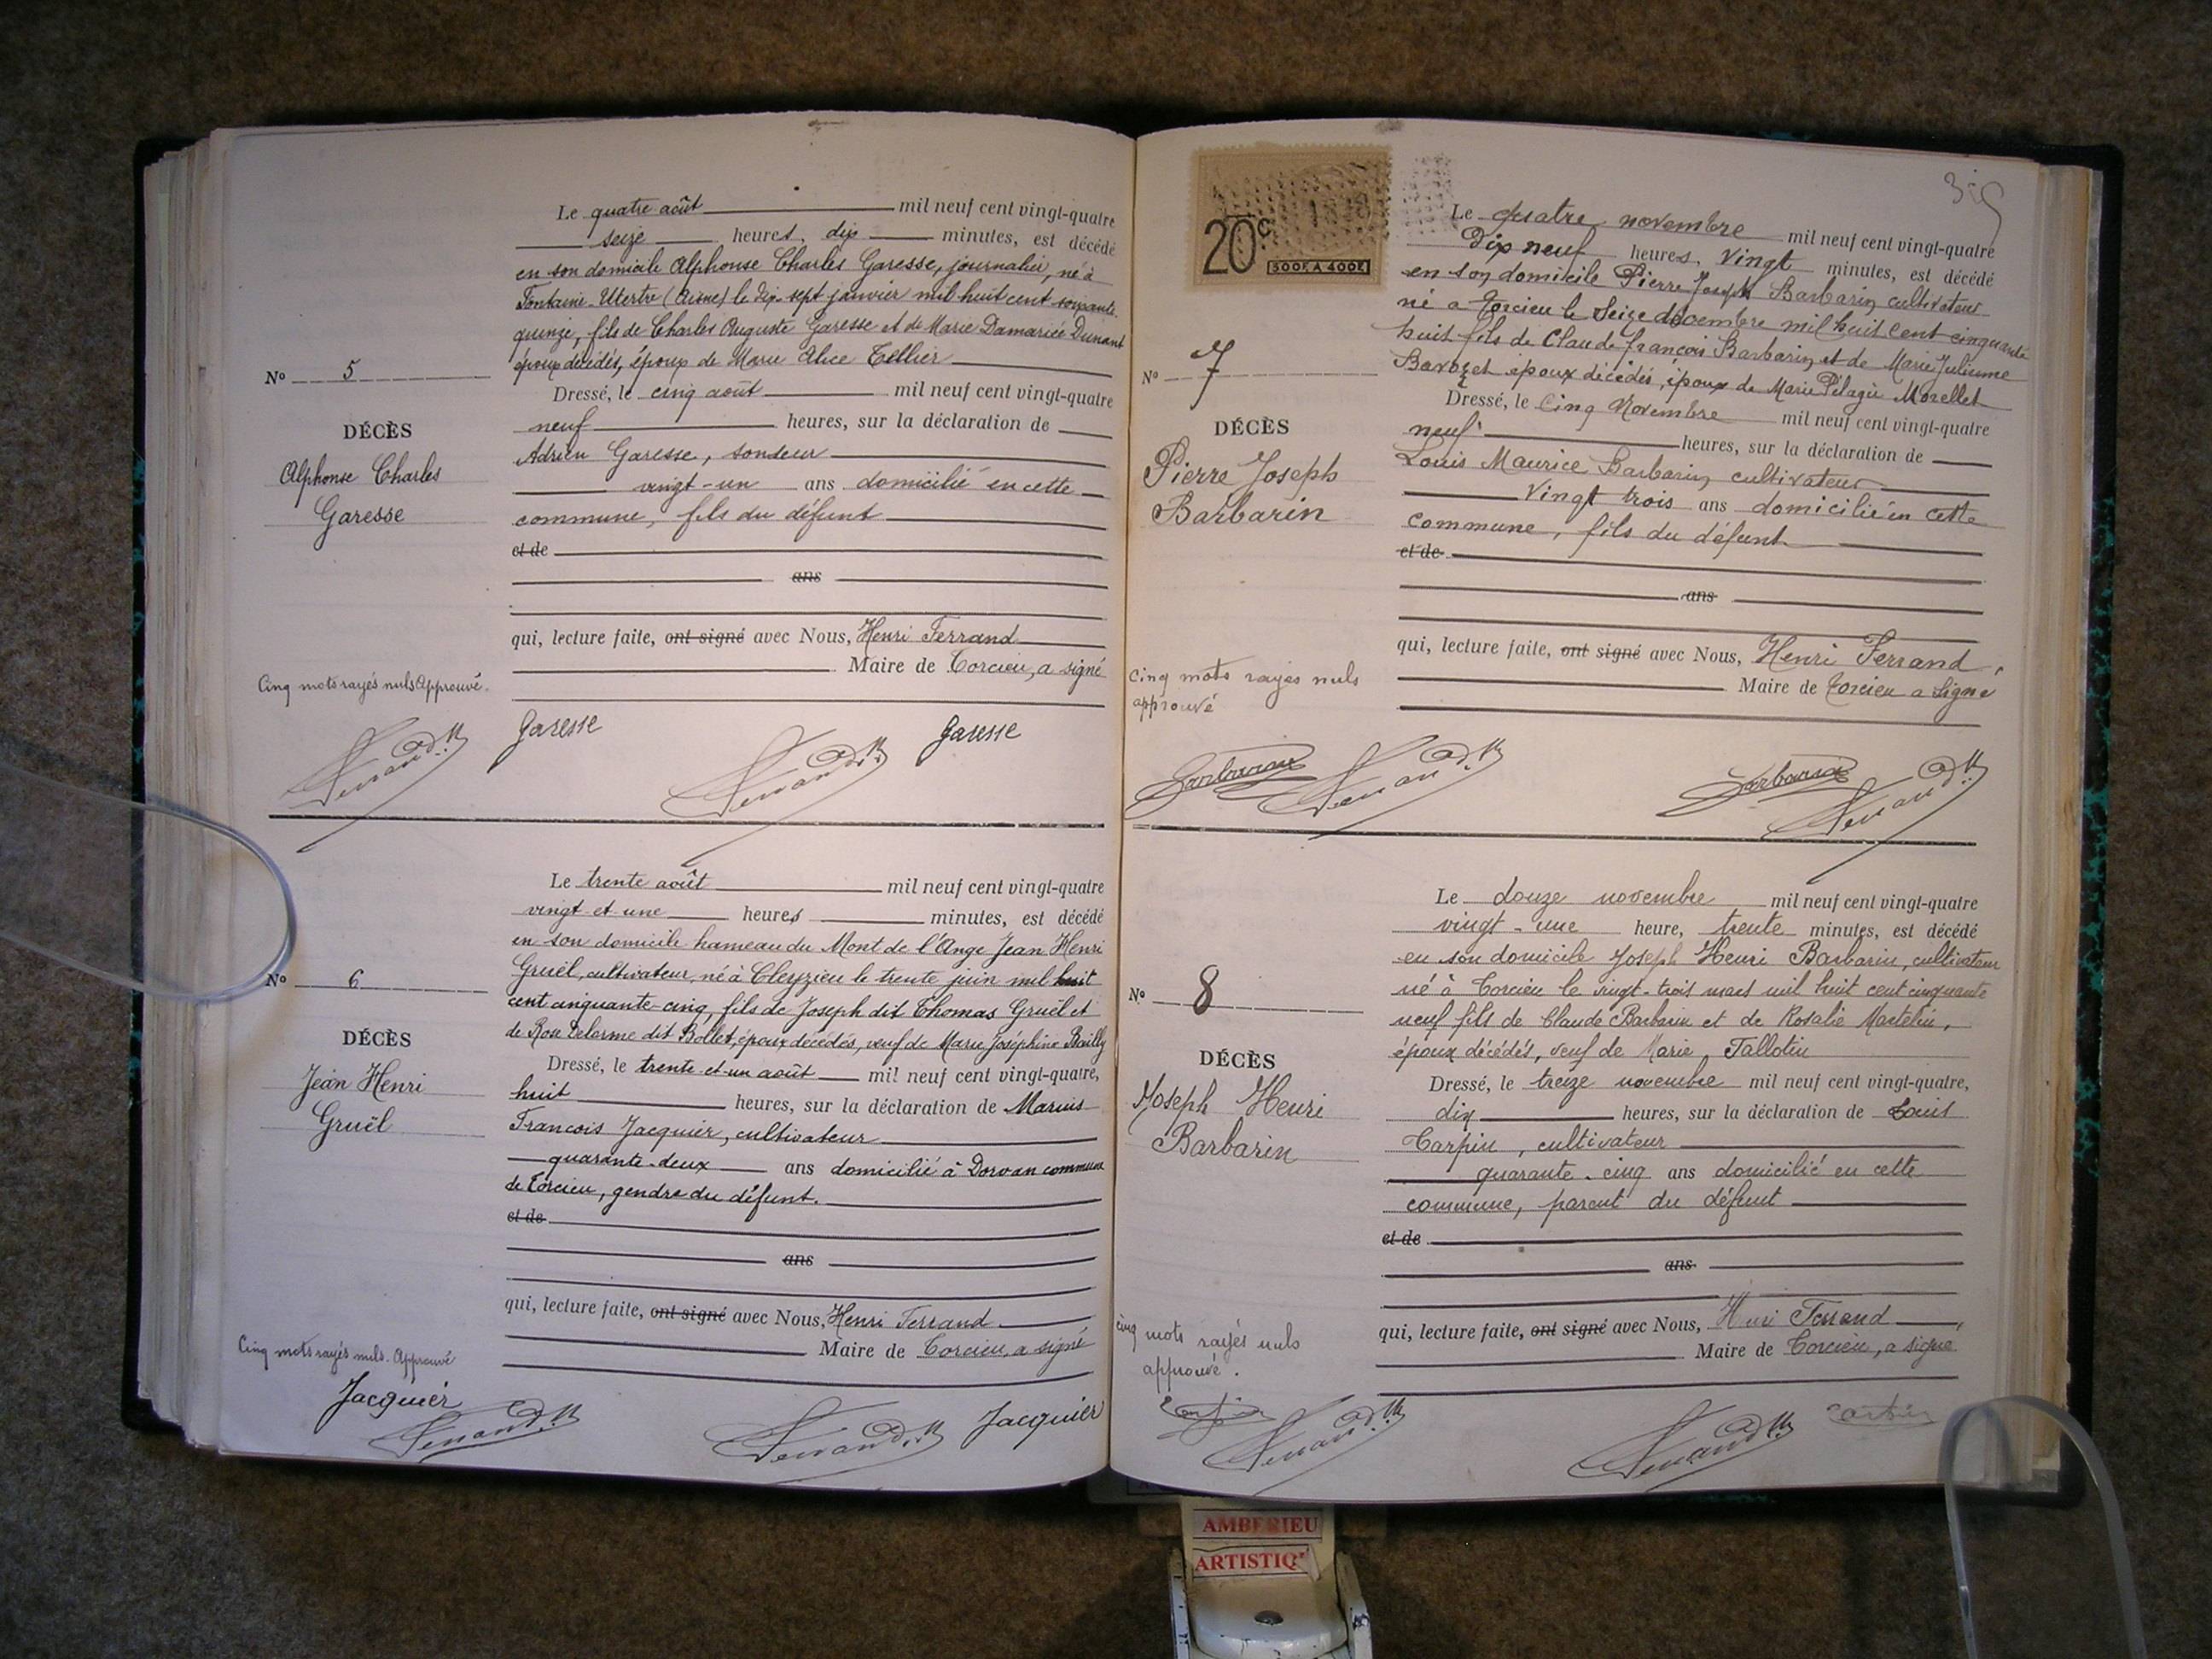 Le quatre août mil neuf cent vingt-quatre
seize heures, dix minutes, est décédé
en son domicile Alphonse Charles Garesse, journalier, né à
Fontaine-Utertre (Aisne) le dix-sept janvier mil huit cent soixante
quinze, fils de Charles Auguste Garesse et de Marie Damariée Dunant
époux décédés, époux de Marie Alice Tellier
Nº 5
Dressé, le cinq août mil neuf cent vingt-quatre
DÉCÈS
neuf heures, sur la déclaration de
Alphonse Charles
Garesse
Adrien Garesse, sondeur
vingt-un ans domicilié en cette
commune, fils du défunt
et de
ans
qui, lecture faite, ont signé avec Nous, Henri Ferrand
Maire de Torcieu, a signé
Cinq mots rayés nuls Approuvé.
Garesse
Garesse
Le trente août mil neuf cent vingt-quatre
vingt et une heures minutes, est décédé
en son domicile hameau du Mont de l'Ange Jean Henri
Gruël, cultivateur, né à Cleyzieu le trente juin mil huit
cent cinquante-cinq, fils de Joseph dit Thomas Gruël et
de Rose Delorme dit Bollet, époux décédés, veuf de Marie Joséphine Bailly
Nº 6
Dressé, le trente-et-un août mil neuf cent vingt-quatre,
DÉCÈS
Jean Henri
Gruël
huit heures, sur la déclaration de Marius
François Jacquier, cultivateur
quarante-deux ans domicilié à Dorvan commune
de Torcieu, gendre du défunt.
et de
ans
qui, lecture faite, ont signé avec Nous, Henri Ferrand
Maire de Torcieu, a signé
Cinq mots rayés nuls. Approuvé
Jacquier
Ferrand
Ferrand
Jacquier
20c
300F. A 400F.
Le quatre novembre mil neuf cent vingt-quatre
Dix neuf heures, Vingt minutes, est décédé
en son domicile Pierre Joseph Barbarin cultivateur
né a Torcieu le Seize décembre mil huit cent cinquante
huit fils de Claude françois Barbarin et de Marie Julienne
Barozet époux décédés, époux de Marie Pélagie Morellet
Nº 7
Dressé, le Cinq Novembre mil neuf cent vingt-quatre
DÉCÈS
Pierre Joseph
Barbarin
neuf heures, sur la déclaration de
Louis Maurice Barbarin cultivateur
Vingt trois ans domicilié en cette
commune, fils du défunt
et de
ans
qui, lecture faite, ont signé avec Nous, Henri Ferrand,
Maire de Torcieu a Signé
Cinq mots rayés nuls
approuvé
Barbarin
Ferrand
Barbarin
Ferrand
Le douze novembre mil neuf cent vingt-quatre
vingt-une heure, trente minutes, est décédé
en son domicile Joseph Henri Barbarin, cultivateur
né à Torcieu le vingt-trois mars mil huit cent cinquante
neuf fils de Claude Barbarin et de Rosalie Martelin,
époux décédés, veuf de Marie Tallotin
Nº 8
Dressé, le treize novembre mil neuf cent vingt-quatre,
DÉCÈS
Joseph Henri
Barbarin
dix heures, sur la déclaration de Louis
Carpin, cultivateur
quarante-cinq ans domicilié en cette
commune, parent du défunt
et de
ans
qui, lecture faite, ont signé avec Nous, Henri Ferrand,
Maire de Torcieu, a signé
cinq mots rayés nuls
approuvé.
Ferrand
Ferrand
AMBERIEU
ARTISTIQ